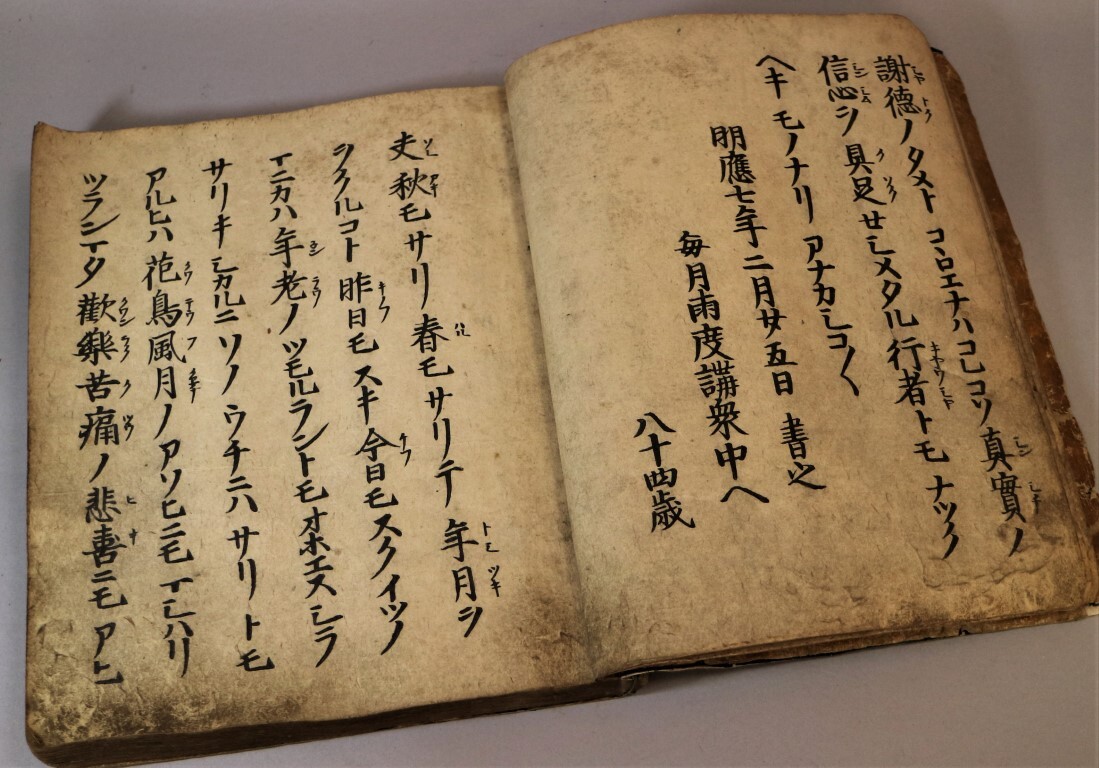 謝德ノタメトコヽロエナハコレコソ真實ノ
信心ヲ具足セシメタル行者トモナツク
ヘキモノナリアナカシコ〳〵
明應七年二月廿五日書之
毎月両度講衆中ヘ
八十四歳
夫秋モサリ春モサリテ年月ヲ
ヲクルコト昨日モスキ今日モスクイツノ
マニカハ年老ノツモルラントモオホエスシラ
サリキシカルニソノウチニハサリトモ
アルヒハ花鳥風月ノアソヒニモマシハリ
ツランマタ歡樂苦痛ノ悲喜ニモアヒ